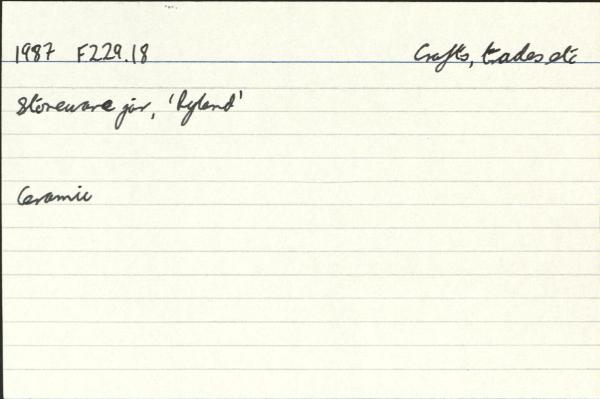 1987 F229.18 Crafts, trades etc
Stoneware jar, 'Ryland'
Ceramic